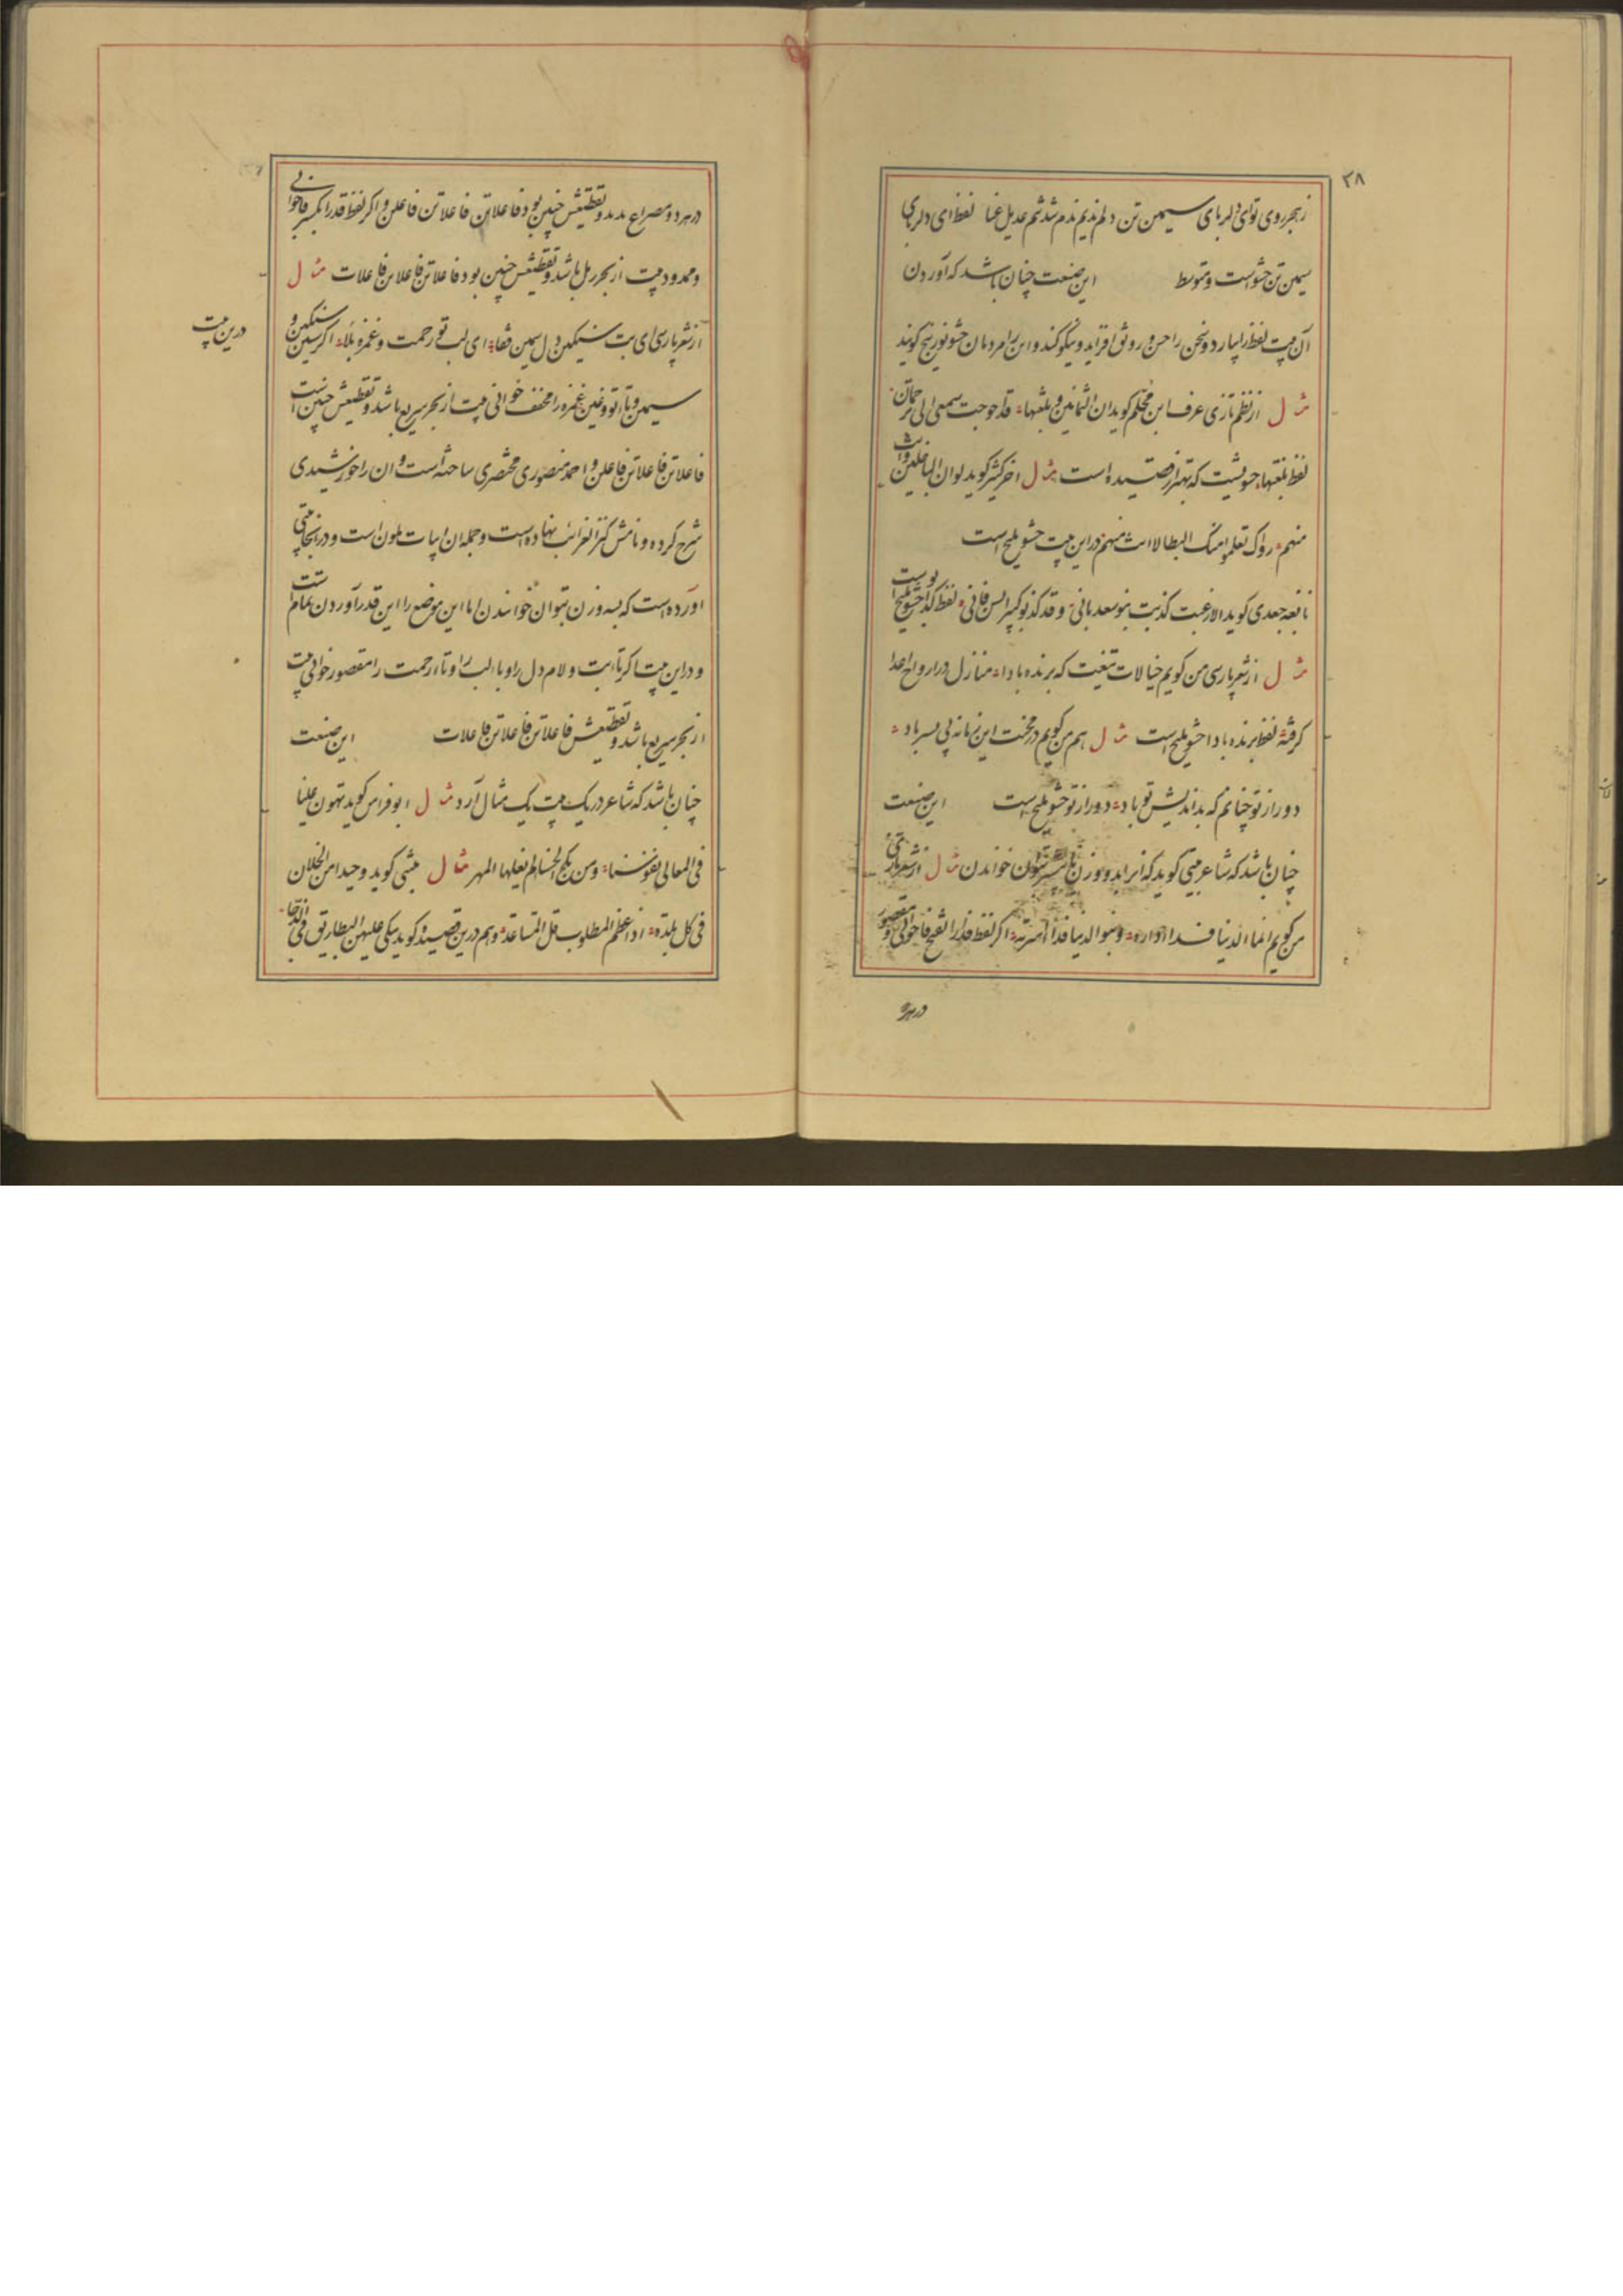 ۲۸
ز هجر روی تو ای دلربای سیمین تن دلم ندیم ندم شد تنم عدیل عنا لفظ ای دلربای
سیمین تن حشو است و متوسط این صنعت چنان باشد که آوردن
آن بیت لفظ را بیاراید و سخن را حسن و رونق افزاید و نیکو کند و این را مردمان حشو لوزینج گویند
مثال از نظم تازی عرف ابن محلم کوید ان الثمانین و بلغتها قد احوجت سمعی الی ترجمان
لفظ بلغتها حشویست که بهتر از قصیده است مثال اخر کثیر کوید لو ان الباخلین و انت
منهم راوک تعلموا منک المطالا انت منهم در این بیت حشو ملیح است
نابغه جعدی کوید الا زعمت کذبت بنو سعد بانی و قد کذبوا کبیر السن فانی لفظ کذبوا حشو ملیح است
مثال از شعر پارسی من کویم خیالات تیغت که برنده بادا منازل در ارواح اعدا
کرفته لفظ برنده بادا حشو ملیح است مثال هم من کویم در محنت این زمانه بی سر باد
دور از تو چنانم که بداندیش تو باد دور از تو حشو ملیح است این صنعت
چنان باشد که شاعر بیتی کوید که انرا بدو وزن یا بیشتر بتوان خواندن مثال از شعر تازی
من کویم انما الدنیا فدا داره و بنو الدنیا فدا اسرته اکر لفظ فدا را بفتح فا خوانی و مقصور
در هر دو
در هر دو مصراع مدید و تقطیعش چنین بود فاعلاتن فاعلاتن فاعلن و اکر لفظ قدر را بکسر فا خوانی
و ممدود بیت از بحر رمل باشد و تقطیعش چنین بود فاعلاتن فاعلاتن فاعلات مثال
از شعر پارسی ای بت سنکین دل سیمین قفا ای لب تو رحمت و غمزه بلا اکر سین سنکین و
درین بیت
سیمین و با تو و غین غمزه را مخفف خوانی بیت از بحر سریع باشد و تقطیعش چنین است
فاعلاتن فاعلاتن فاعلن و احمد منصوری مختصری ساخته است و ان را خورشیدی
شرح کرده و نامش کنز الغرائب نهاده است و جمله ان ابیات ملون است و در انجا بیتی
آورده است که بسه وزن بتوان خواندن اما این موضع را این قدر آوردن تمام است
و در این بیت اکر تا بت و لام دل را و با لب را و تا رحمت را مقصور خوانی بیت
از بحر سریع باشد و تقطیعش فاعلاتن فاعلاتن فاعلات این صنعت
چنان باشد که شاعر در یک بیت یک مثال آرد مثال ابو فراس کوید تهون علینا
فی المعالی نفوسنا و من ینکح الحسنا لم یغلها المهر مثال متنبی کوید وحیدا من الخلان
فی کل بلدة اذا عظم المطلوب قل المساعد و هم درین قصیده کوید یبکی علیهن البطاریق فی الدجا